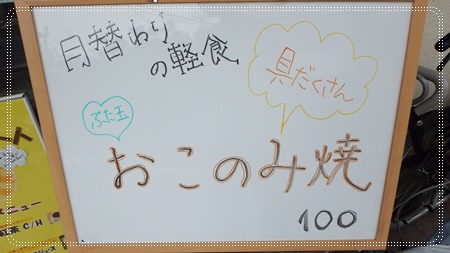 月替わり
の軽食
具だくさん
ぶた玉
おこのみ焼
100
ニュー
C/H